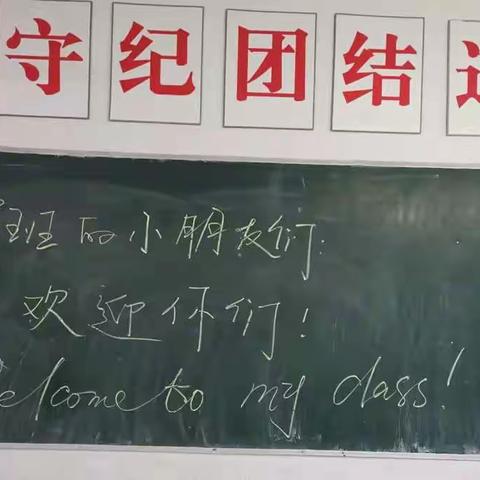 守纪团结
班的小朋友们:
欢迎你们!
Welcome to my class!